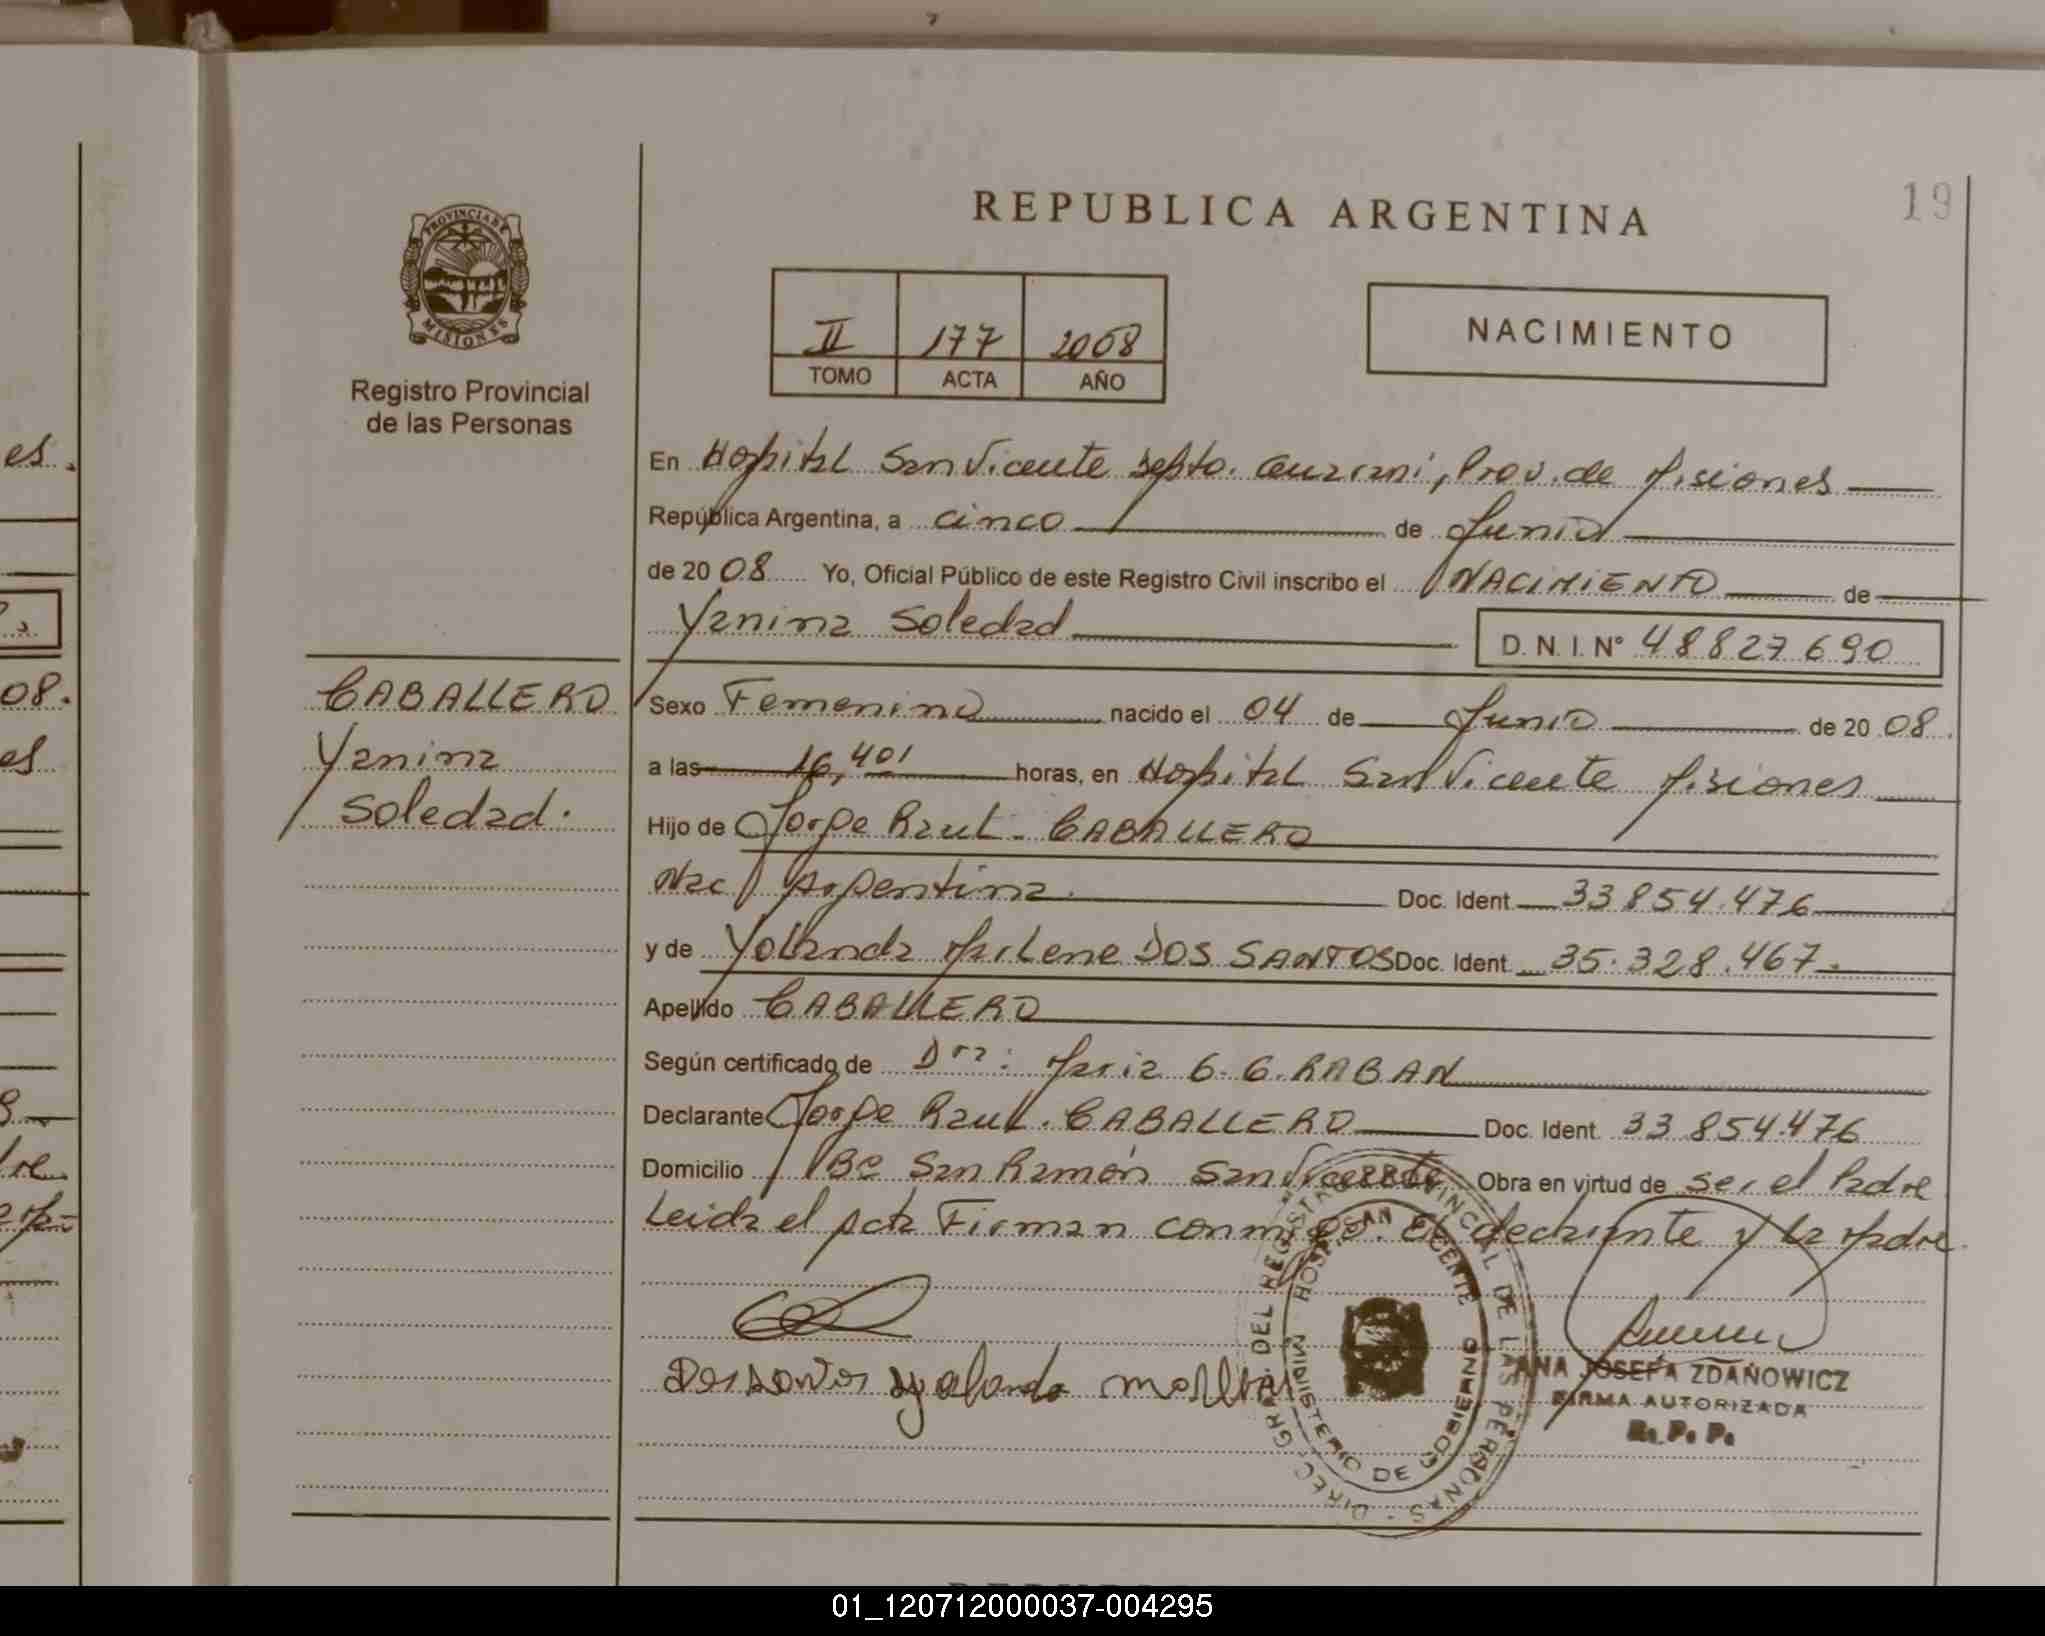 19
REPUBLICA ARGENTINA
PROVINCIA DE
MISIONES
Registro Provincial
de las Personas
II 177 2008
TOMO ACTA AÑO
NACIMIENTO
En Hospital San Vicente Depto. Guarani, Prov. de Misiones
República Argentina, a cinco de Junio
de 2008 Yo, Oficial Público de este Registro Civil inscribo el NACIMIENTO de
Yanina Soledad
D. N. I. N° 48827690
CABALLERO
Yanina
Soledad.
Sexo Femenino nacido el 04 de Junio de 2008.
a las 16,40' horas, en Hospital San Vicente Misiones
Hijo de Jorge Raul CABALLERO
Nac Argentina. Doc. Ident. 33854.476
y de Yolanda Marlene DOS SANTOS Doc. Ident. 35.328.467.
Apellido CABALLERO
Según certificado de Dra: Maria G. G. RABAN
Declarante Jorge Raul. CABALLERO Doc. Ident. 33 854.476
Domicilio Bº San Ramón San Vicente Obra en virtud de ser el Padre
Leida el Acta Firman conmigo. El declarante y la Madre.
DIREC. GRAL. DEL REGISTRO PROVINCIAL DE LAS PERSONAS
HOSP. SAN VICENTE
MINISTERIO DE GOBIERNO
ANA JOSEFA ZDANOWICZ
FIRMA AUTORIZADA
R. P. P.
es.
08.
es
01_120712000037-004295